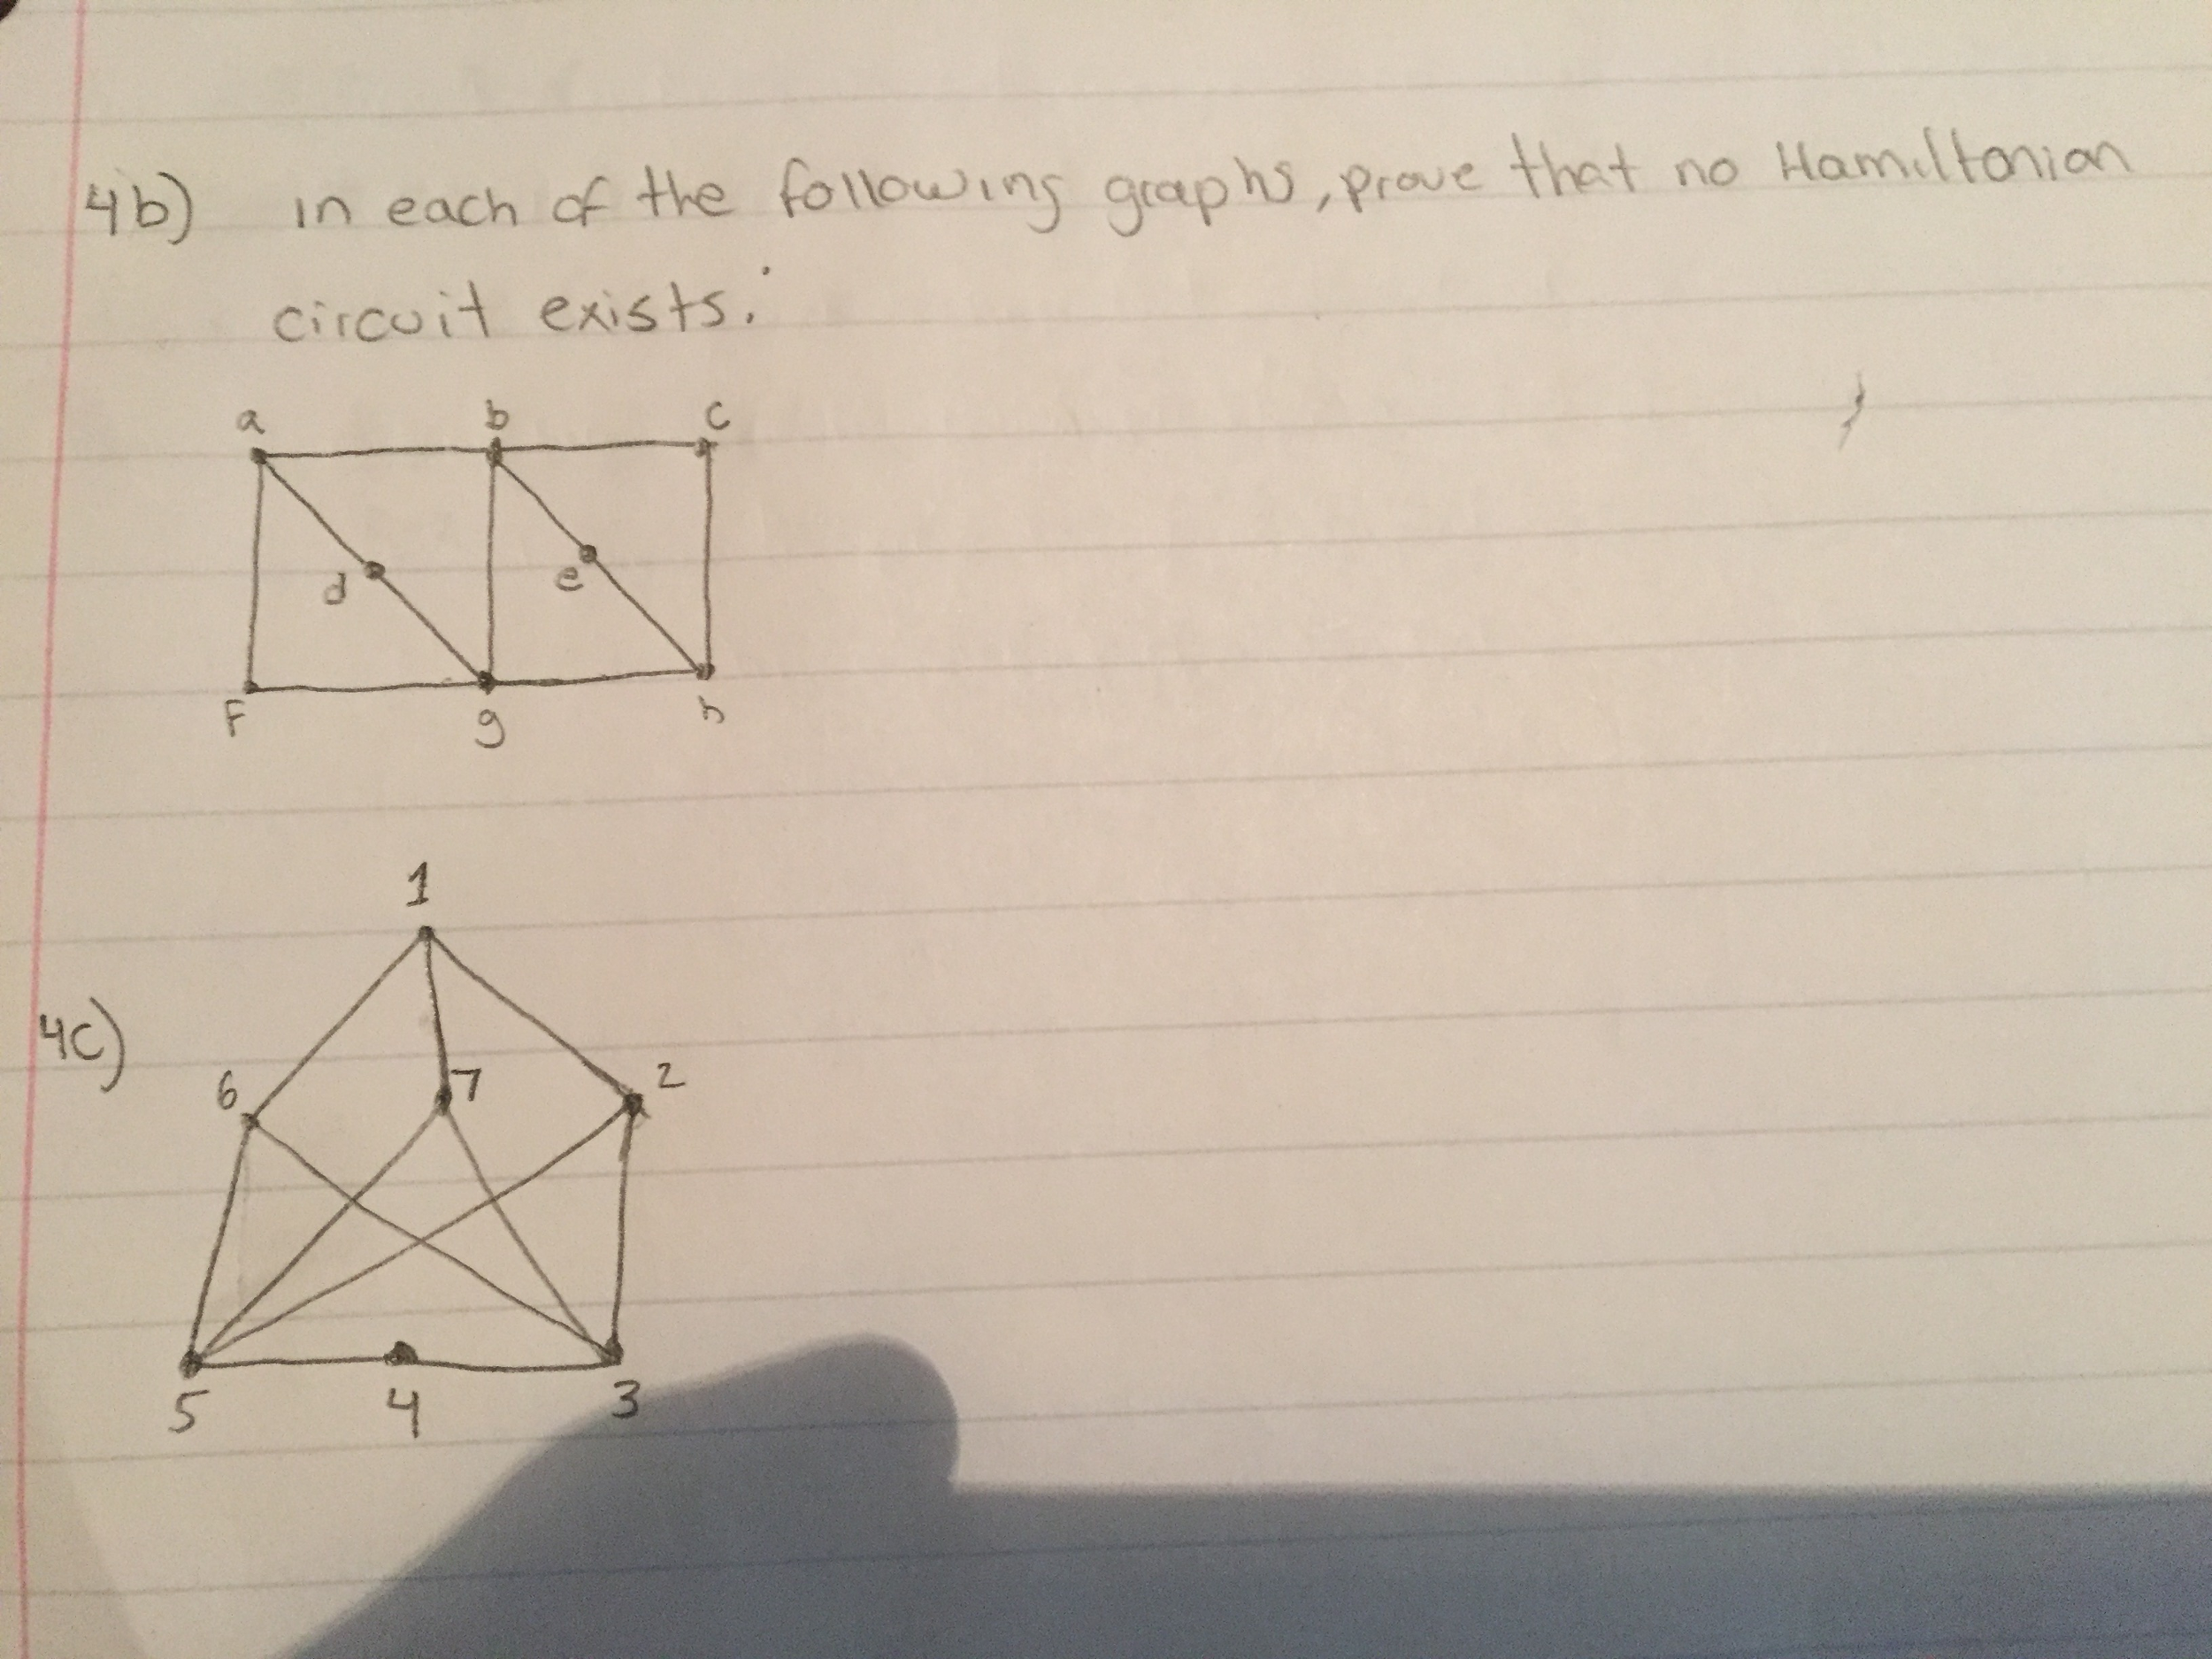 4b) in each of the following graphs, prove that no Hamiltonian
circuit exists.
a b c
d e
F g h
1
4c)
6 7 2
5 4 3